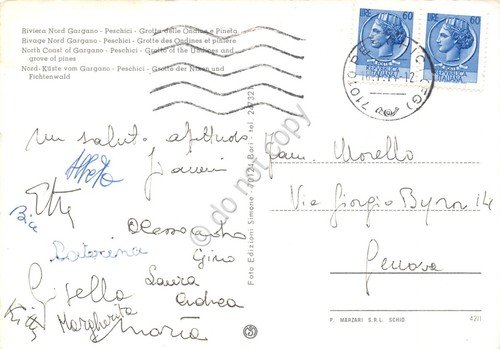 Riviera Nord Gargano - Peschici - Grotte delle Ondine e Pineta
Rivage Nord Gargano - Peschici - Grottes des Ondines et pinière
North Coast of Gargano - Peschici - Grotte of the Undines and
grove of pines
Nord-Küste vom Gargano - Peschici - Grotte der Nixen und
Fichtenwald
LIRE 60
60
71010 PESCHICI (FG)
Un saluto affettuoso
Gianni
Alfredo
Etta
Bice
Alessandro
Caterina
Gino
Gisella
Laura
Andrea
Kitty
Margherita
Maria
Foto Edizioni Simone - 70124 Bari - tel. 24732
Fam. Morello
Via Giorgio Byron 14
Genova
P. MARZARI S.R.L. SCHIO
4211
do not copy